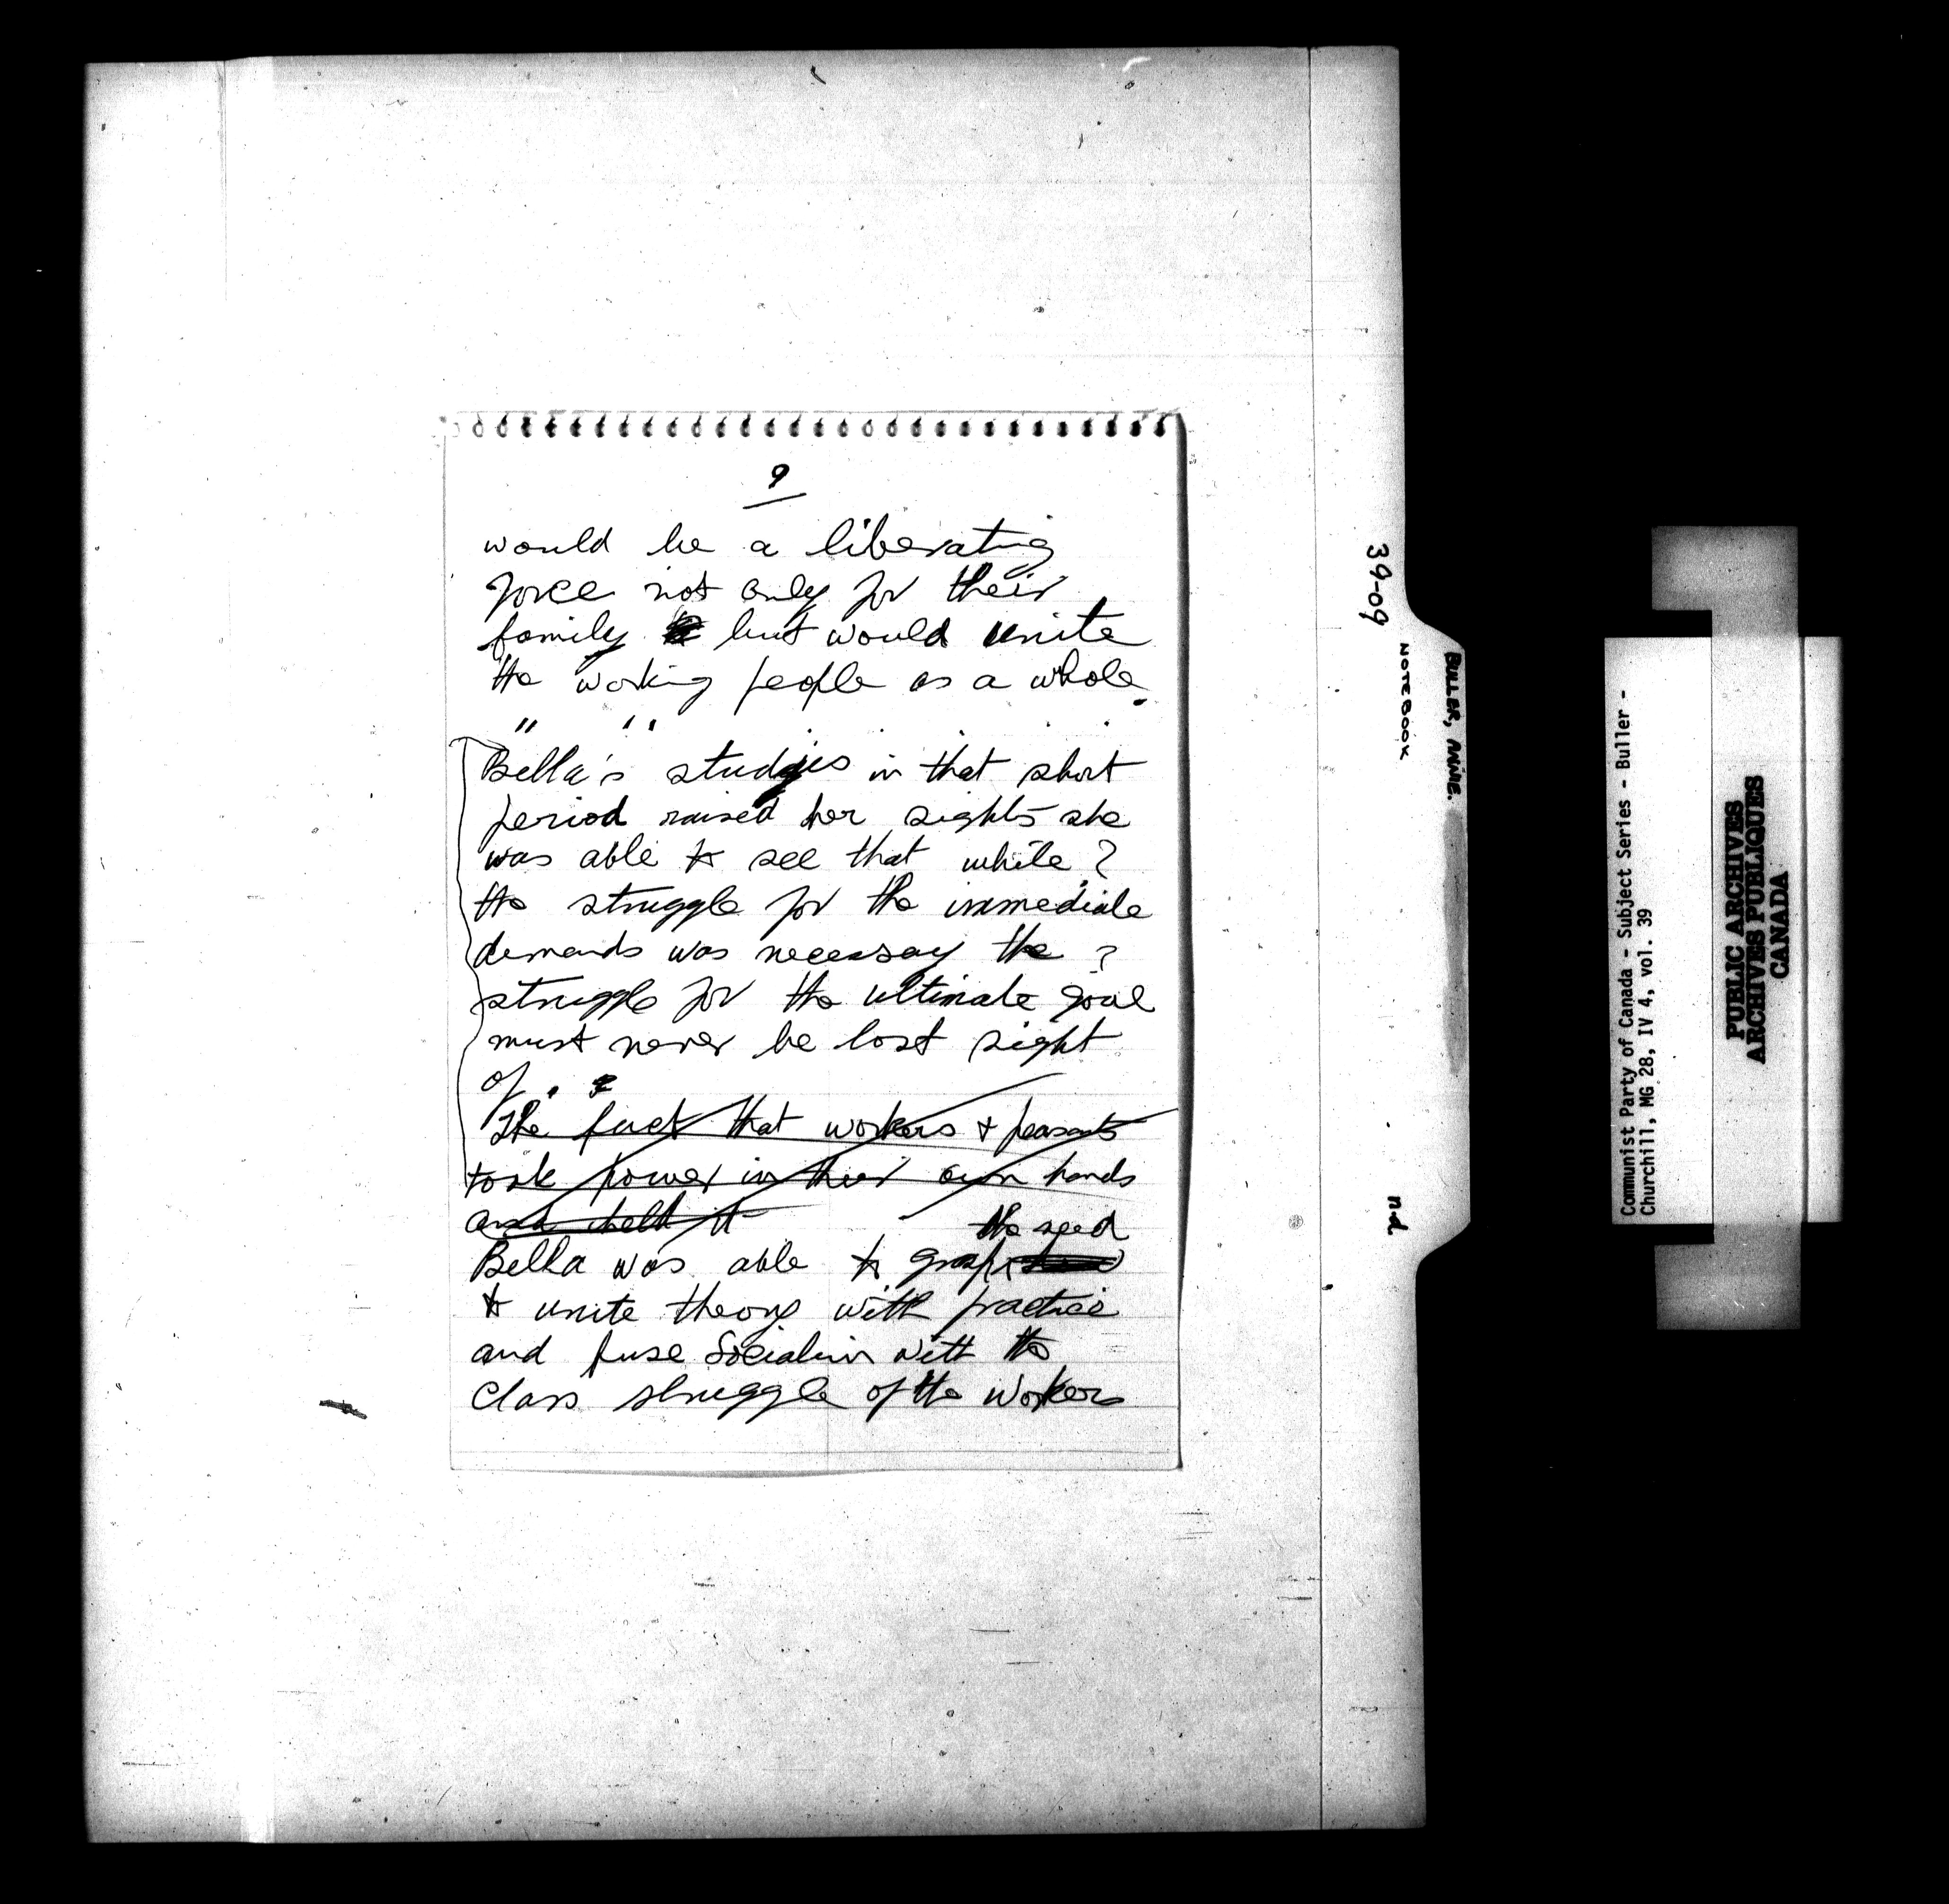 9
would be a liberating
force not only for their
family but would unite
the working people as a whole.
" "
Bella's studies in that short
period raised her sights she
was able to see that while ?
the struggle for the immediate
demands was necessay the ?
struggle for the ultimate goal
must never be lost sight
of. ?
The fact that workers + peasants
took power in their own hands
and held it
the need
Bella was able to grasp
to unite theory with practice
and fuse Socialism with the
Class struggle of the workers
39-09
NOTEBOOK
BULLER, ANNIE.
nd
Communist Party of Canada - Subject Series - Buller -
Churchill, MG 28, IV 4, vol. 39
PUBLIC ARCHIVES
ARCHIVES PUBLIQUES
CANADA